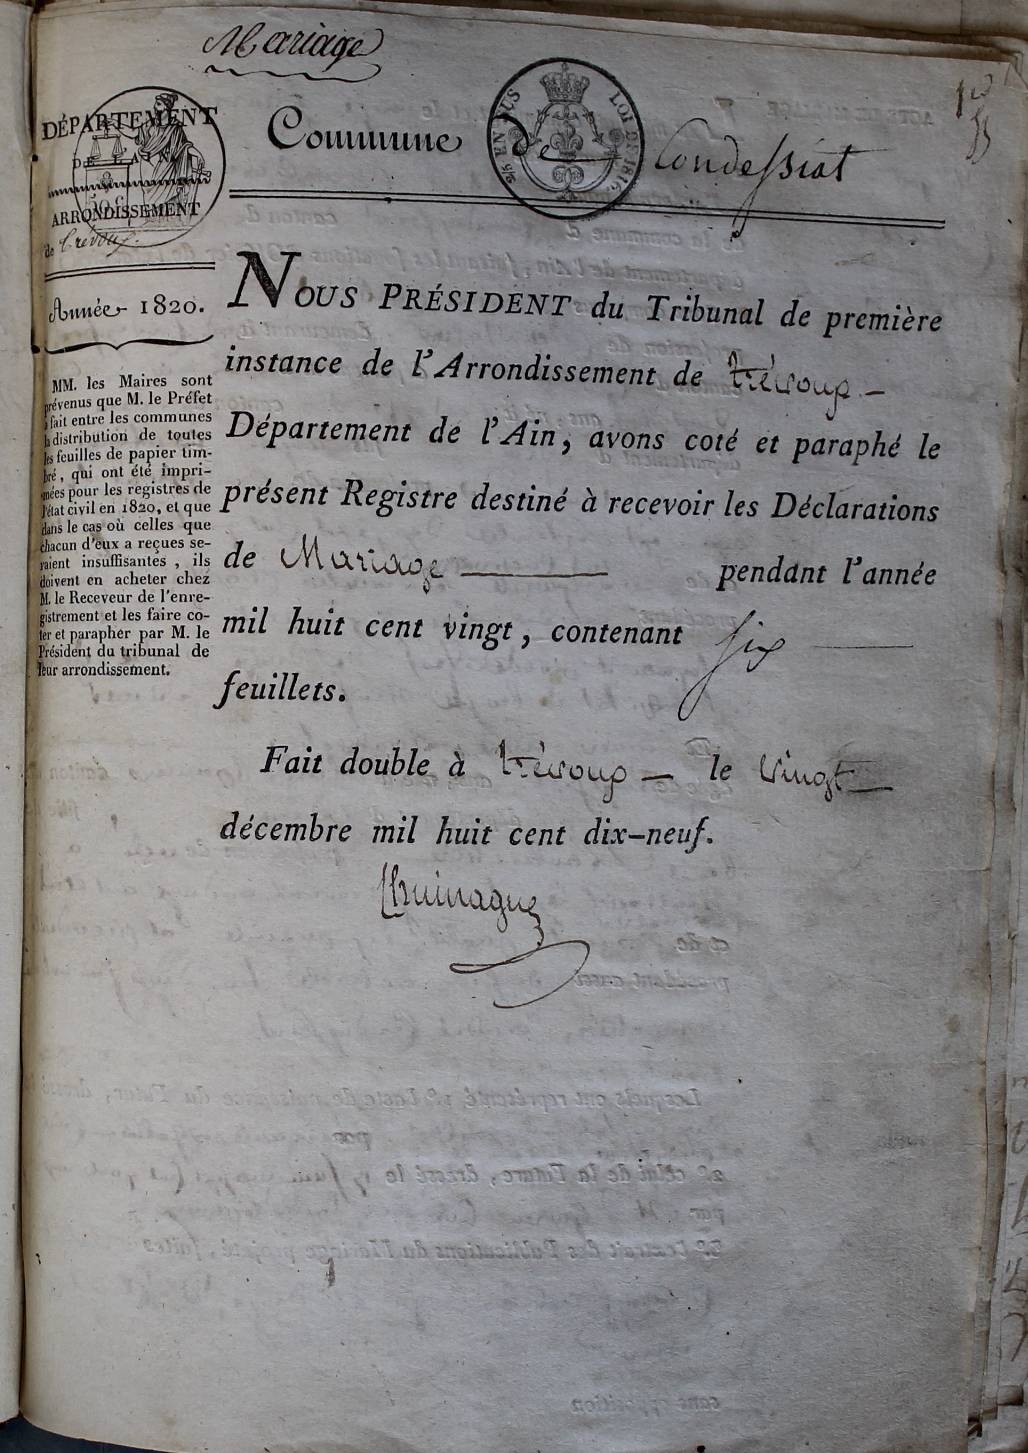 Mariage
DÉPARTEMENT
DE L'AIN.
ARRONDISSEMENT
de Trévoux.
Commune de Condeissiat
5/% EN SUS LOI DE 1816
Année 1820.
MM. les Maires sont
prévenus que M. le Préfet
a fait entre les communes
la distribution de toutes
les feuilles de papier tim-
bré, qui ont été impri-
mées pour les registres de
l'état civil en 1820, et que
dans le cas où celles que
chacun d'eux a reçues se-
raient insuffisantes, ils
doivent en acheter chez
M. le Receveur de l'enre-
gistrement et les faire co-
ter et parapher par M. le
Président du tribunal de
leur arrondissement.
NOUS PRÉSIDENT du Tribunal de première
instance de l'Arrondissement de trévoux
Département de l'Ain, avons coté et paraphé le
présent Registre destiné à recevoir les Déclarations
de Mariage pendant l'année
mil huit cent vingt, contenant six
feuillets.
Fait double à trévoux le vingt
décembre mil huit cent dix-neuf.